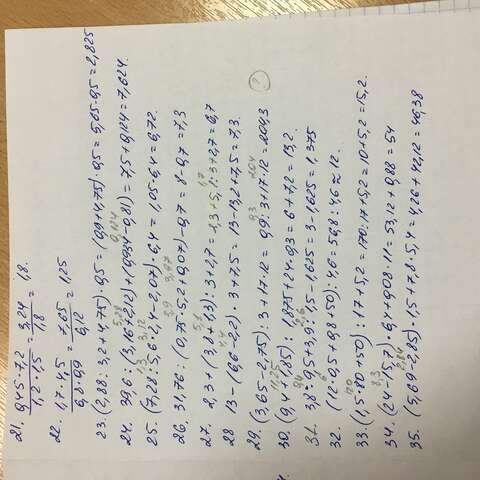 21. 0,45·7,2 / 1,2·1,5 = 3,24 / 1,8 = 1,8.
22. 1,7·4,5 / 6,8·0,9 = 7,65 / 6,12 = 1,25
23. (2,88 : 3,2 + 4,75)·0,5 = (0,9 + 4,75)·0,5 = 5,65·0,5 = 2,825
24. 39,6 : (3,16 + 2,12) + (0,934 - 0,81) = 7,5 + 0,124 = 7,624.
25. (7,28 : 5,6 2,4 - 2,07) · 6,4 = 1,05·6,4 = 6,72.
26. 31,76 : (0,75·5,2 + 0,07) - 0,7 = 8 - 0,7 = 7,3
27. 2,3 + (3,8 + 1,3) : 3 + 2,7 = 2,3 + 5,1 : 3 + 2,7 = 6,7
28 13 - (6,6 - 2,2) · 3 + 7,5 = 13 - 13,2 + 7,5 = 7,3.
29. (3,65 - 2,75) : 3 + 17·12 = 0,9 : 3 + 17·12 = 204,3
30. (9,4 + 1,85) : 1,875 + 24·0,3 = 6 + 7,2 = 13,2.
31. 3,8 : 9,5 + 3,9 : 1,5 - 1,625 = 3 - 1,625 = 1,375
32. (12·0,5 + 0,8·50) : 4,6 = 56,8 : 4,6 ≈ 12.
33. (1,5·80 + 50) : 17 + 5,2 = 170 : 17 + 5,2 = 10 + 5,2 = 15,2.
34. (24 - 15,7) · 6,4 + 0,08·11 = 53,12 + 0,88 = 54
35. (5,69 - 2,85) · 1,5 + 7,8·5,4 = 4,26 + 42,12 = 46,38